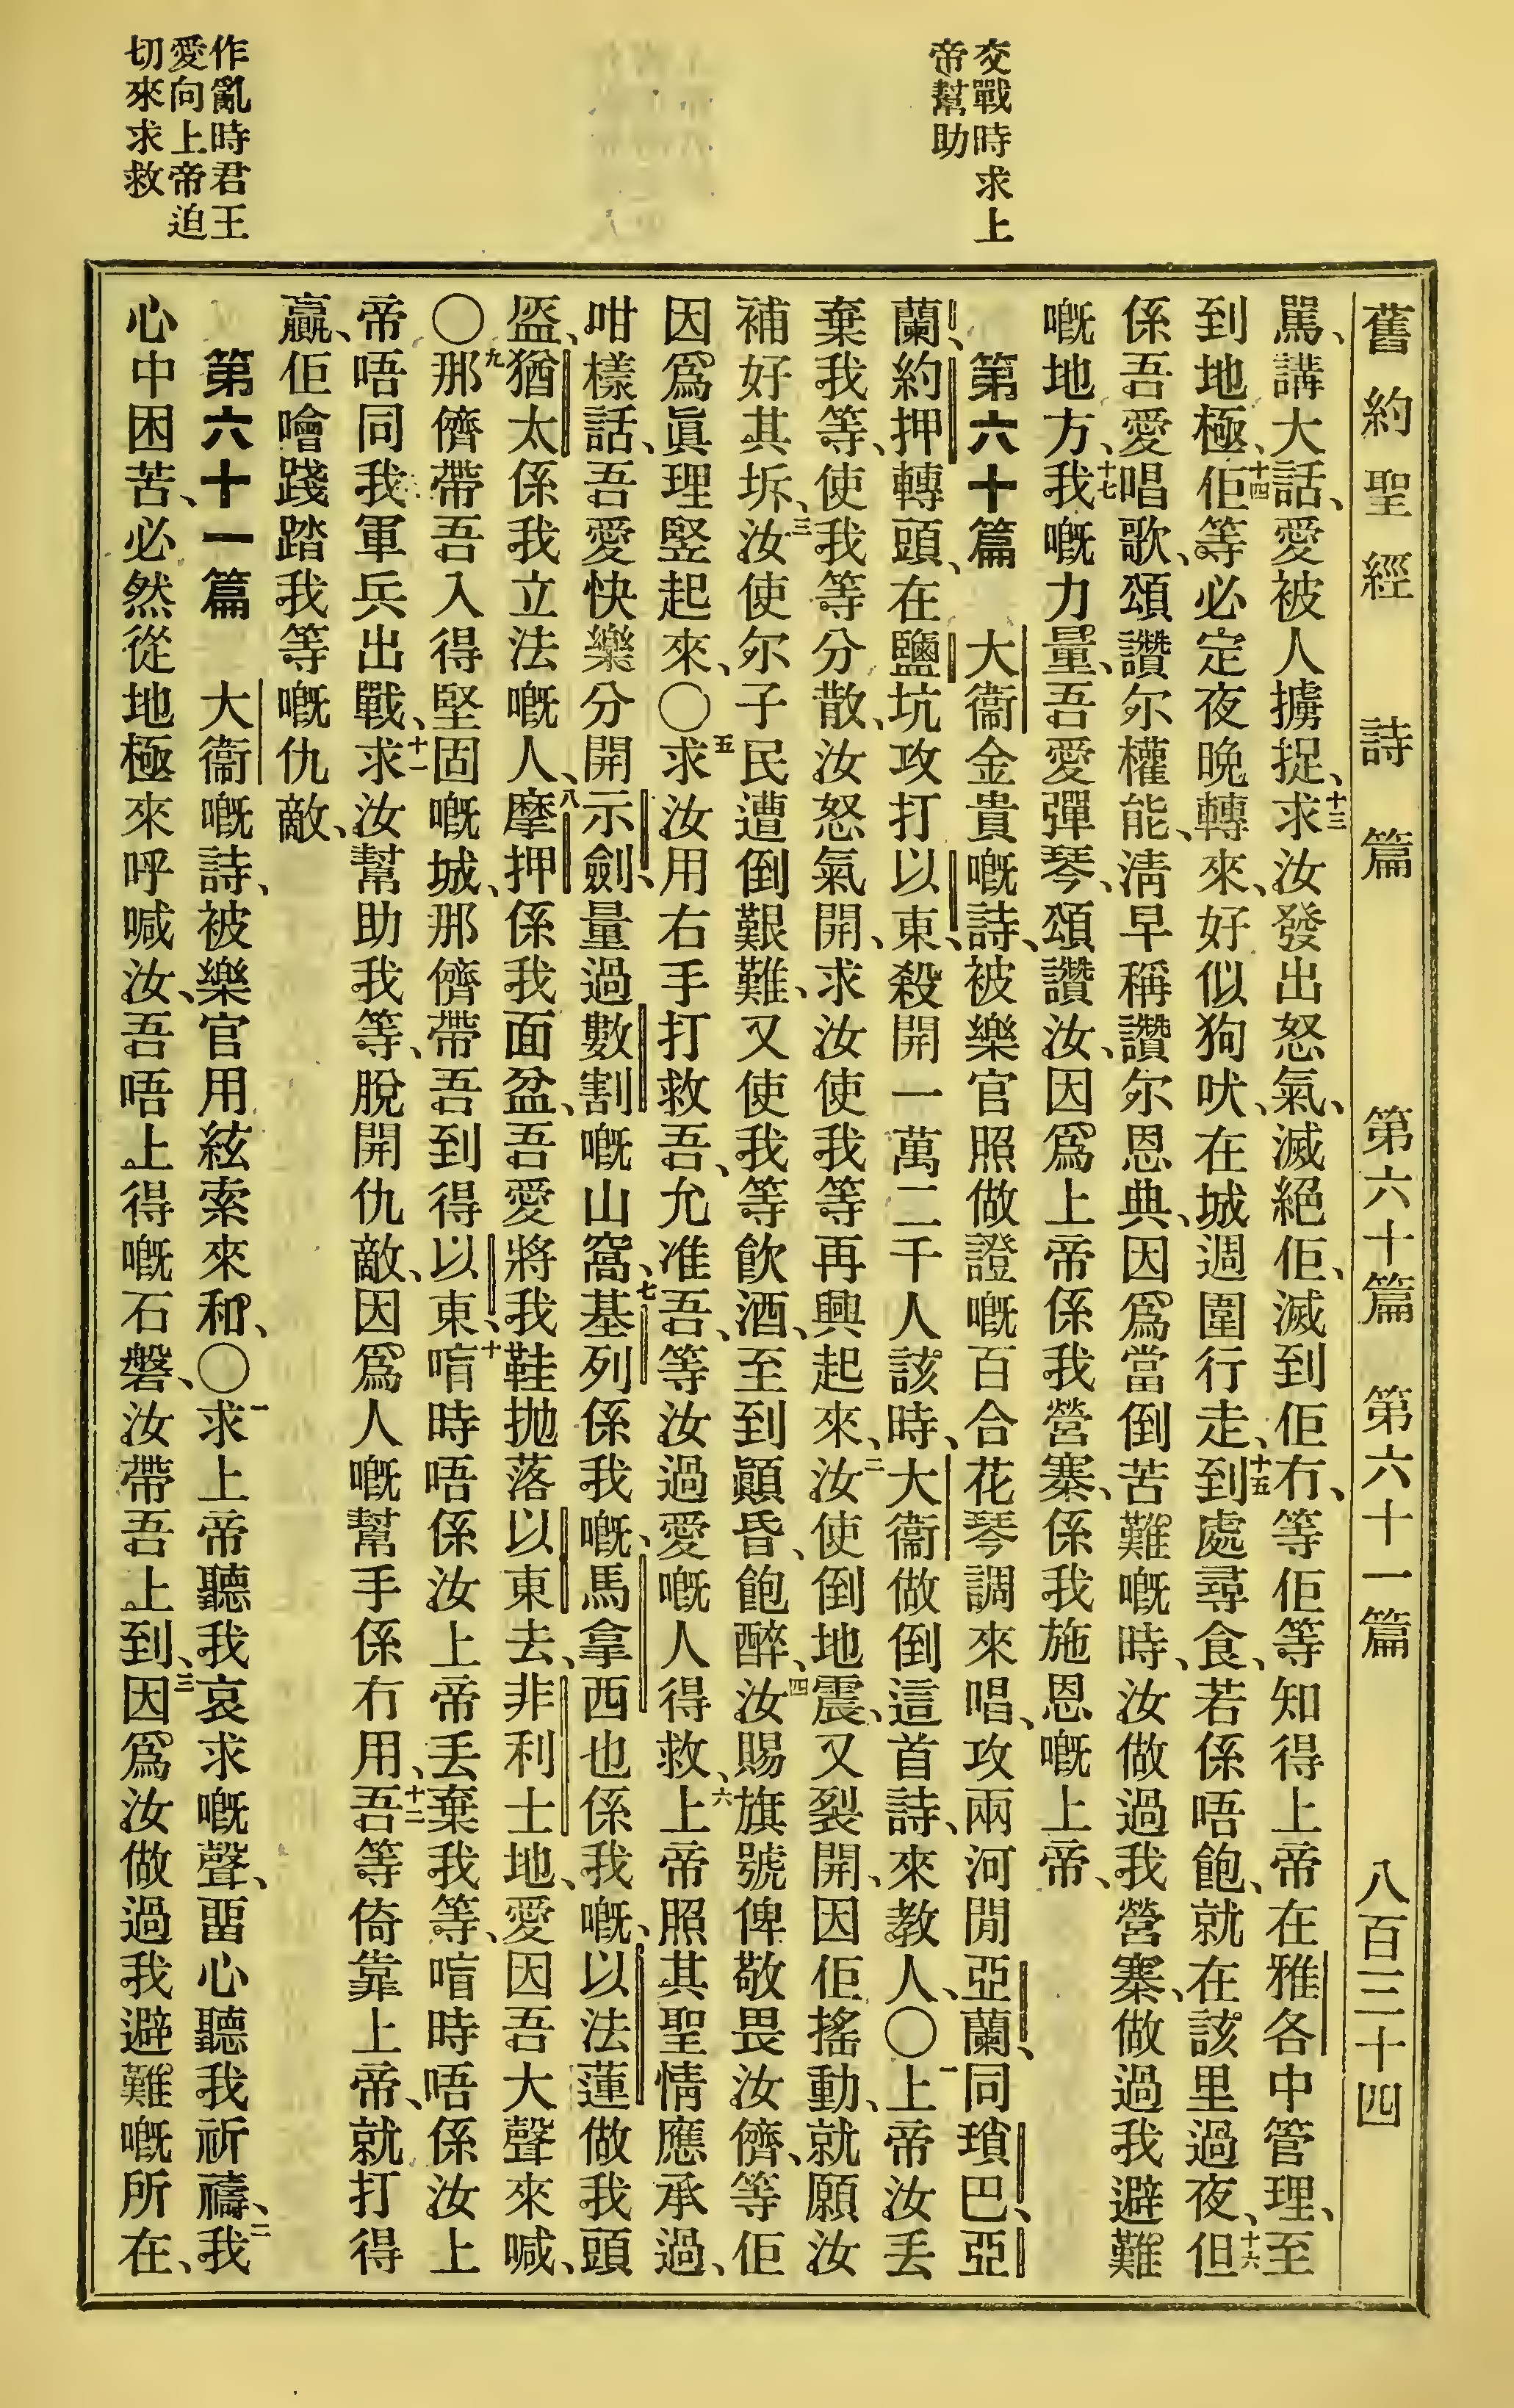 交戰時求上
帝幫助
作亂時君王
愛向上帝迫
切來求救
舊約聖經 詩篇 第六十篇 第六十一篇 八百三十四
駡、講大話、愛被人擄捉、十三求汝發出怒氣、滅絕佢、滅到佢冇、等佢等知得上帝在雅各中管理、至
到地極、十四佢等必定夜晚轉來、好似狗吠、在城週圍行走、十五到處尋食、若係唔飽、就在該里過夜、十六但
係吾愛唱歌、頌讚尔權能、淸早稱讚尔恩典、因爲當倒苦難嘅時、汝做過我營寨、做過我避難
嘅地方、十七我嘅力量、吾愛彈琴、頌讚汝、因爲上帝係我營寨、係我施恩嘅上帝、
第六十篇 大衞金貴嘅詩、被樂官照做證嘅百合花琴調來唱、攻兩河閒亞蘭、同瑣巴、亞
蘭、約押轉頭、在鹽坑攻打以東、殺開一萬二千人該時、大衞做倒這首詩、來教人、〇一上帝汝丢
棄我等、使我等分散、汝怒氣開、求汝使我等再興起來、二汝使倒地震、又裂開、因佢搖動、就願汝
補好其坼、三汝使尔子民遭倒艱難、又使我等飮酒、至到顚昏、飽醉、四汝賜旗號俾敬畏汝儕、等佢
因爲眞理竪起來、〇五求汝用右手打救吾、允准吾、等汝過愛嘅人得救、六上帝照其聖情應承過、
咁樣話、吾愛快樂分開示劍、量過數割嘅山窩、七基列係我嘅、馬拿西也係我嘅、以法蓮做我頭
盔、猶太係我立法嘅人、八摩押係我面盆、吾愛將我鞋抛落以東去、非利士地、愛因吾大聲來喊、
〇九那儕帶吾入得堅固嘅城、那儕帶吾到得以東、十唷時唔係汝上帝丢棄我等、唷時唔係汝上
帝唔同我軍兵出戰、十一求汝幫助我等、脫開仇敵、因爲人嘅幫手係冇用、十二吾等倚靠上帝、就打得
贏、佢噲踐踏我等嘅仇敵、
第六十一篇 大衞嘅詩、被樂官用絃索來和、〇一求上帝聽我哀求嘅聲、畱心聽我祈禱、二我
心中困苦、必然從地極來呼喊汝、吾唔上得嘅石磐、汝帶吾上到、三因爲汝做過我避難嘅所在、